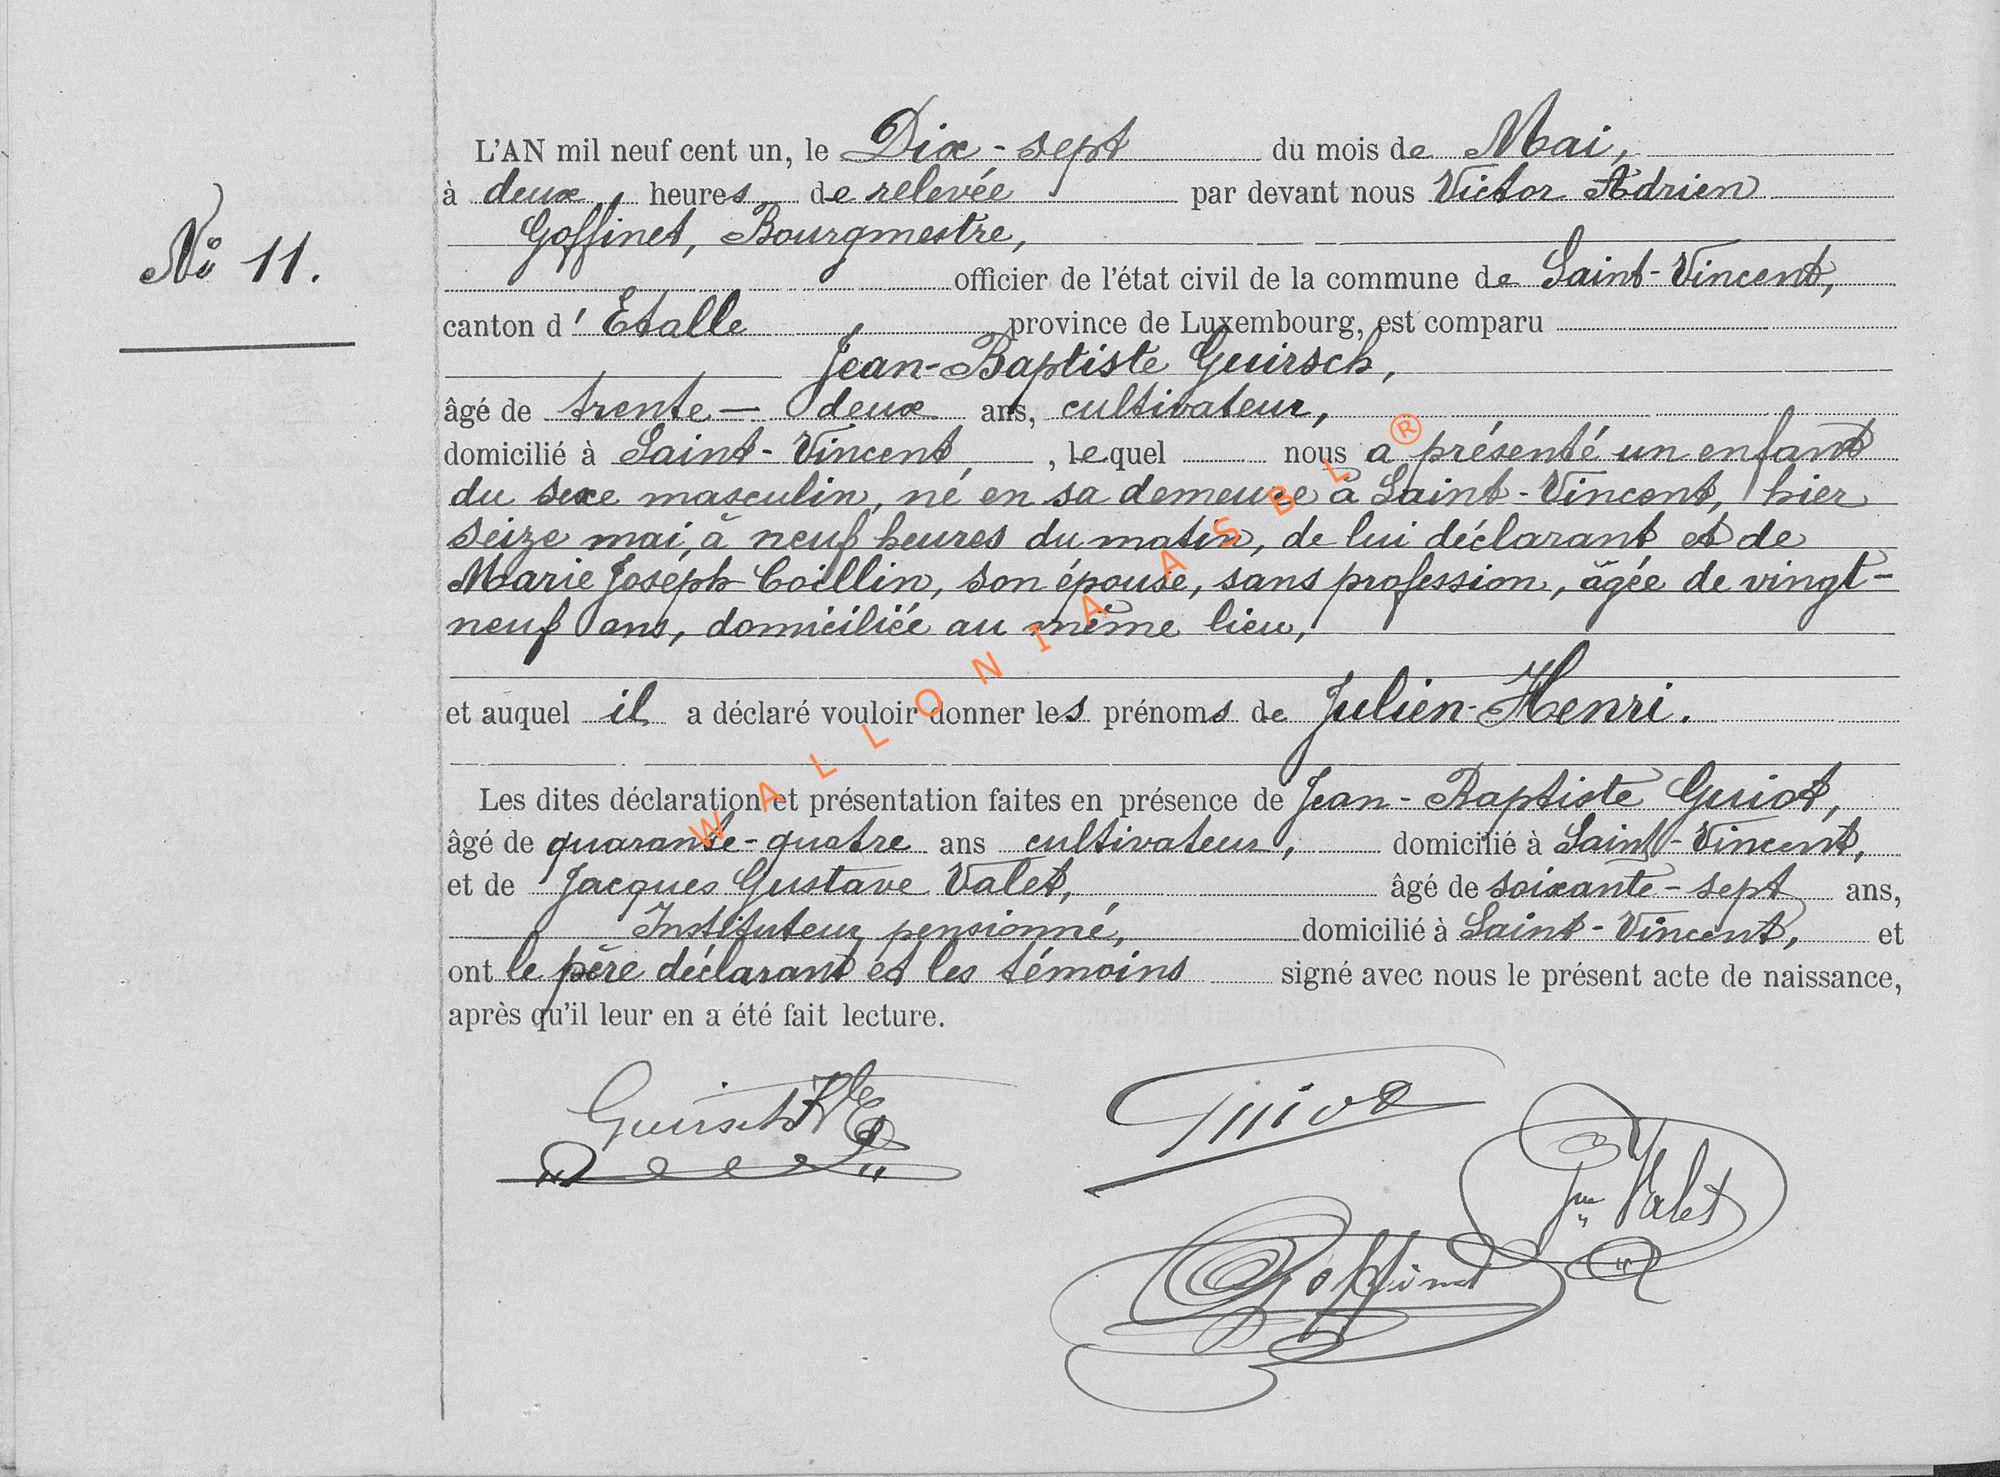 N° 11.
L'AN mil neuf cent un, le Dix-sept du mois de Mai,
à deux heures de relevée par devant nous Victor Adrien
Goffinet, Bourgmestre,
officier de l'état civil de la commune de Saint-Vincent,
canton d'Etalle province de Luxembourg, est comparu
Jean-Baptiste Guirsch,
âgé de trente-deux ans, cultivateur,
domicilié à Saint-Vincent, lequel nous a présenté un enfant
du sexe masculin, né en sa demeure à Saint-Vincent, hier
seize mai, à neuf heures du matin, de lui déclarant et de
Marie Joseph Coillin, son épouse, sans profession, âgée de vingt-
neuf ans, domiciliée au même lieu,
et auquel il a déclaré vouloir donner les prénoms de Julien-Henri.
Les dites déclaration et présentation faites en présence de Jean-Baptiste Guiot,
âgé de quarante-quatre ans cultivateur, domicilié à Saint-Vincent,
et de Jacques Gustave Valet, âgé de soixante-sept ans,
Instituteur pensionné, domicilié à Saint-Vincent, et
ont le père déclarant et les témoins signé avec nous le présent acte de naissance,
après qu'il leur en a été fait lecture.
Guirsch
Guiot
Valet
Goffinet
WALLONIA ASBL ®